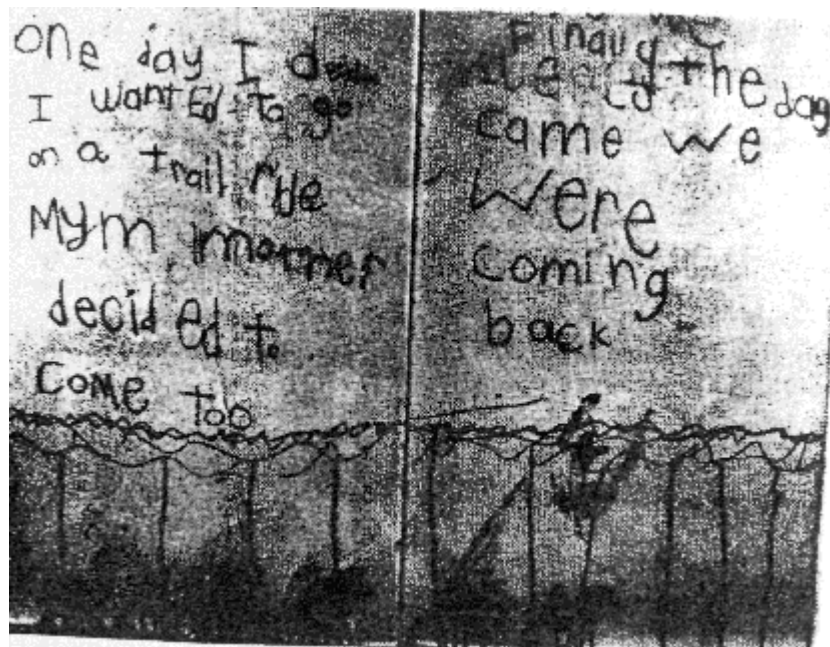 one day I
I wanted to go
on a trail ride
My
decided to
come too
the day
came we
were
coming
back